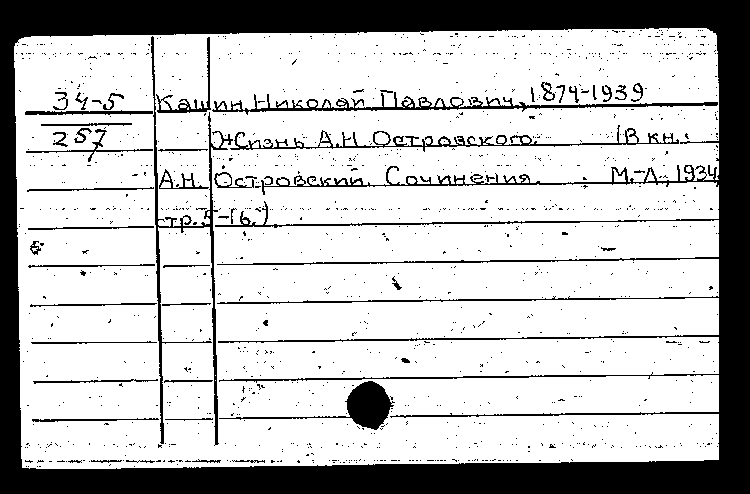 34-5 Кашин, Николай Павлович, 1874-1939
257 Жизнь А.Н. Островского. (В кн.:
А.Н. Островский. Сочинения. М.-Л., 1934,
стр. 5-16.)